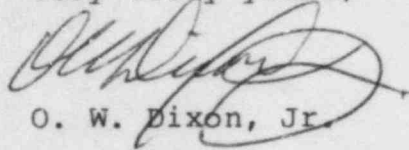 O. W. Dixon, Jr.